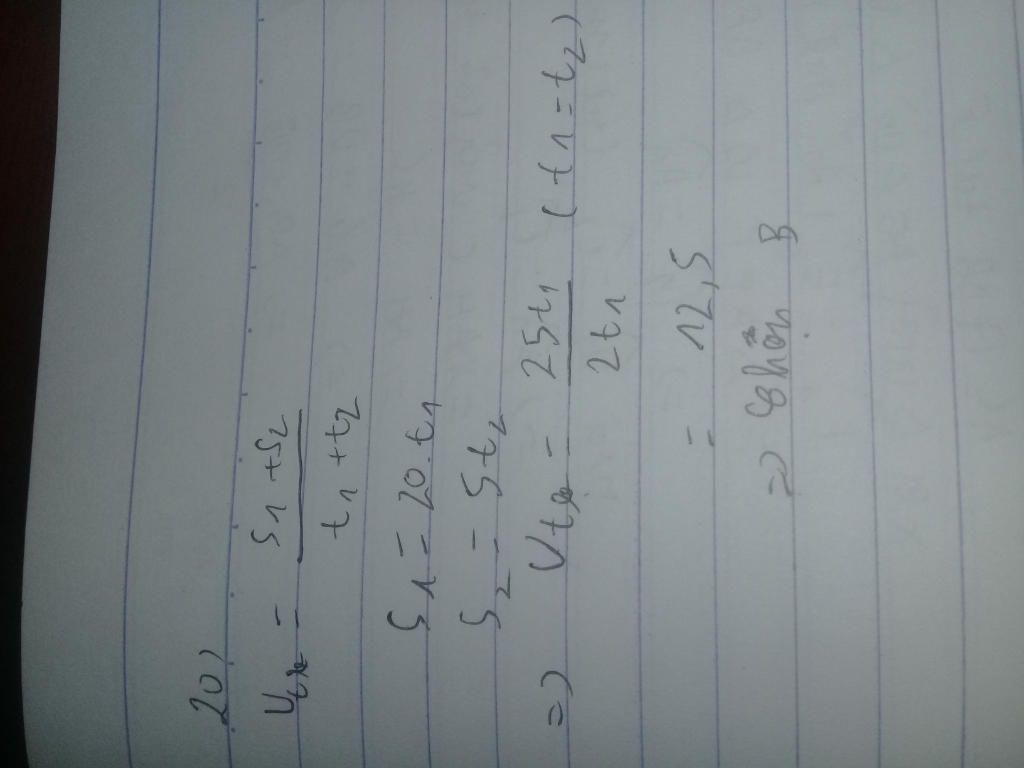 20)
Vtb = S1 + S2 / t1 + t2
S1 = 20.t1
S2 = 5t2
=> Vtb = 25t1 / 2t1 (t1 = t2)
= 12,5
=> chọn B